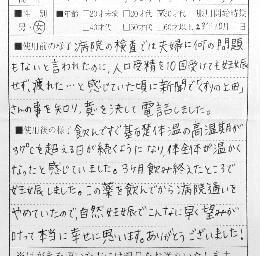 ■性別 ■年齢 □20才未満 □20才代 ☑30才代
男・女 □40才代
■使用前の様子 病院の検査では夫婦に何の問題
もないと言われたのに、人口受精を10回受けても妊娠
せず、疲れた…と感じていた頃に新聞で「利の田」
さんの事を知り、意を決して電話しました。
■使用後の様子 飲んですぐ基礎体温の高温期が
37℃を超える日が続くようになり、体全体が温かく
なったと感じていました。3ヶ月飲み終えたところで
妊娠しました。この薬を飲んでから病院通いを
やめていたので、自然妊娠でこんなに早く望みが
叶って本当に幸せに思います。ありがとうございました!